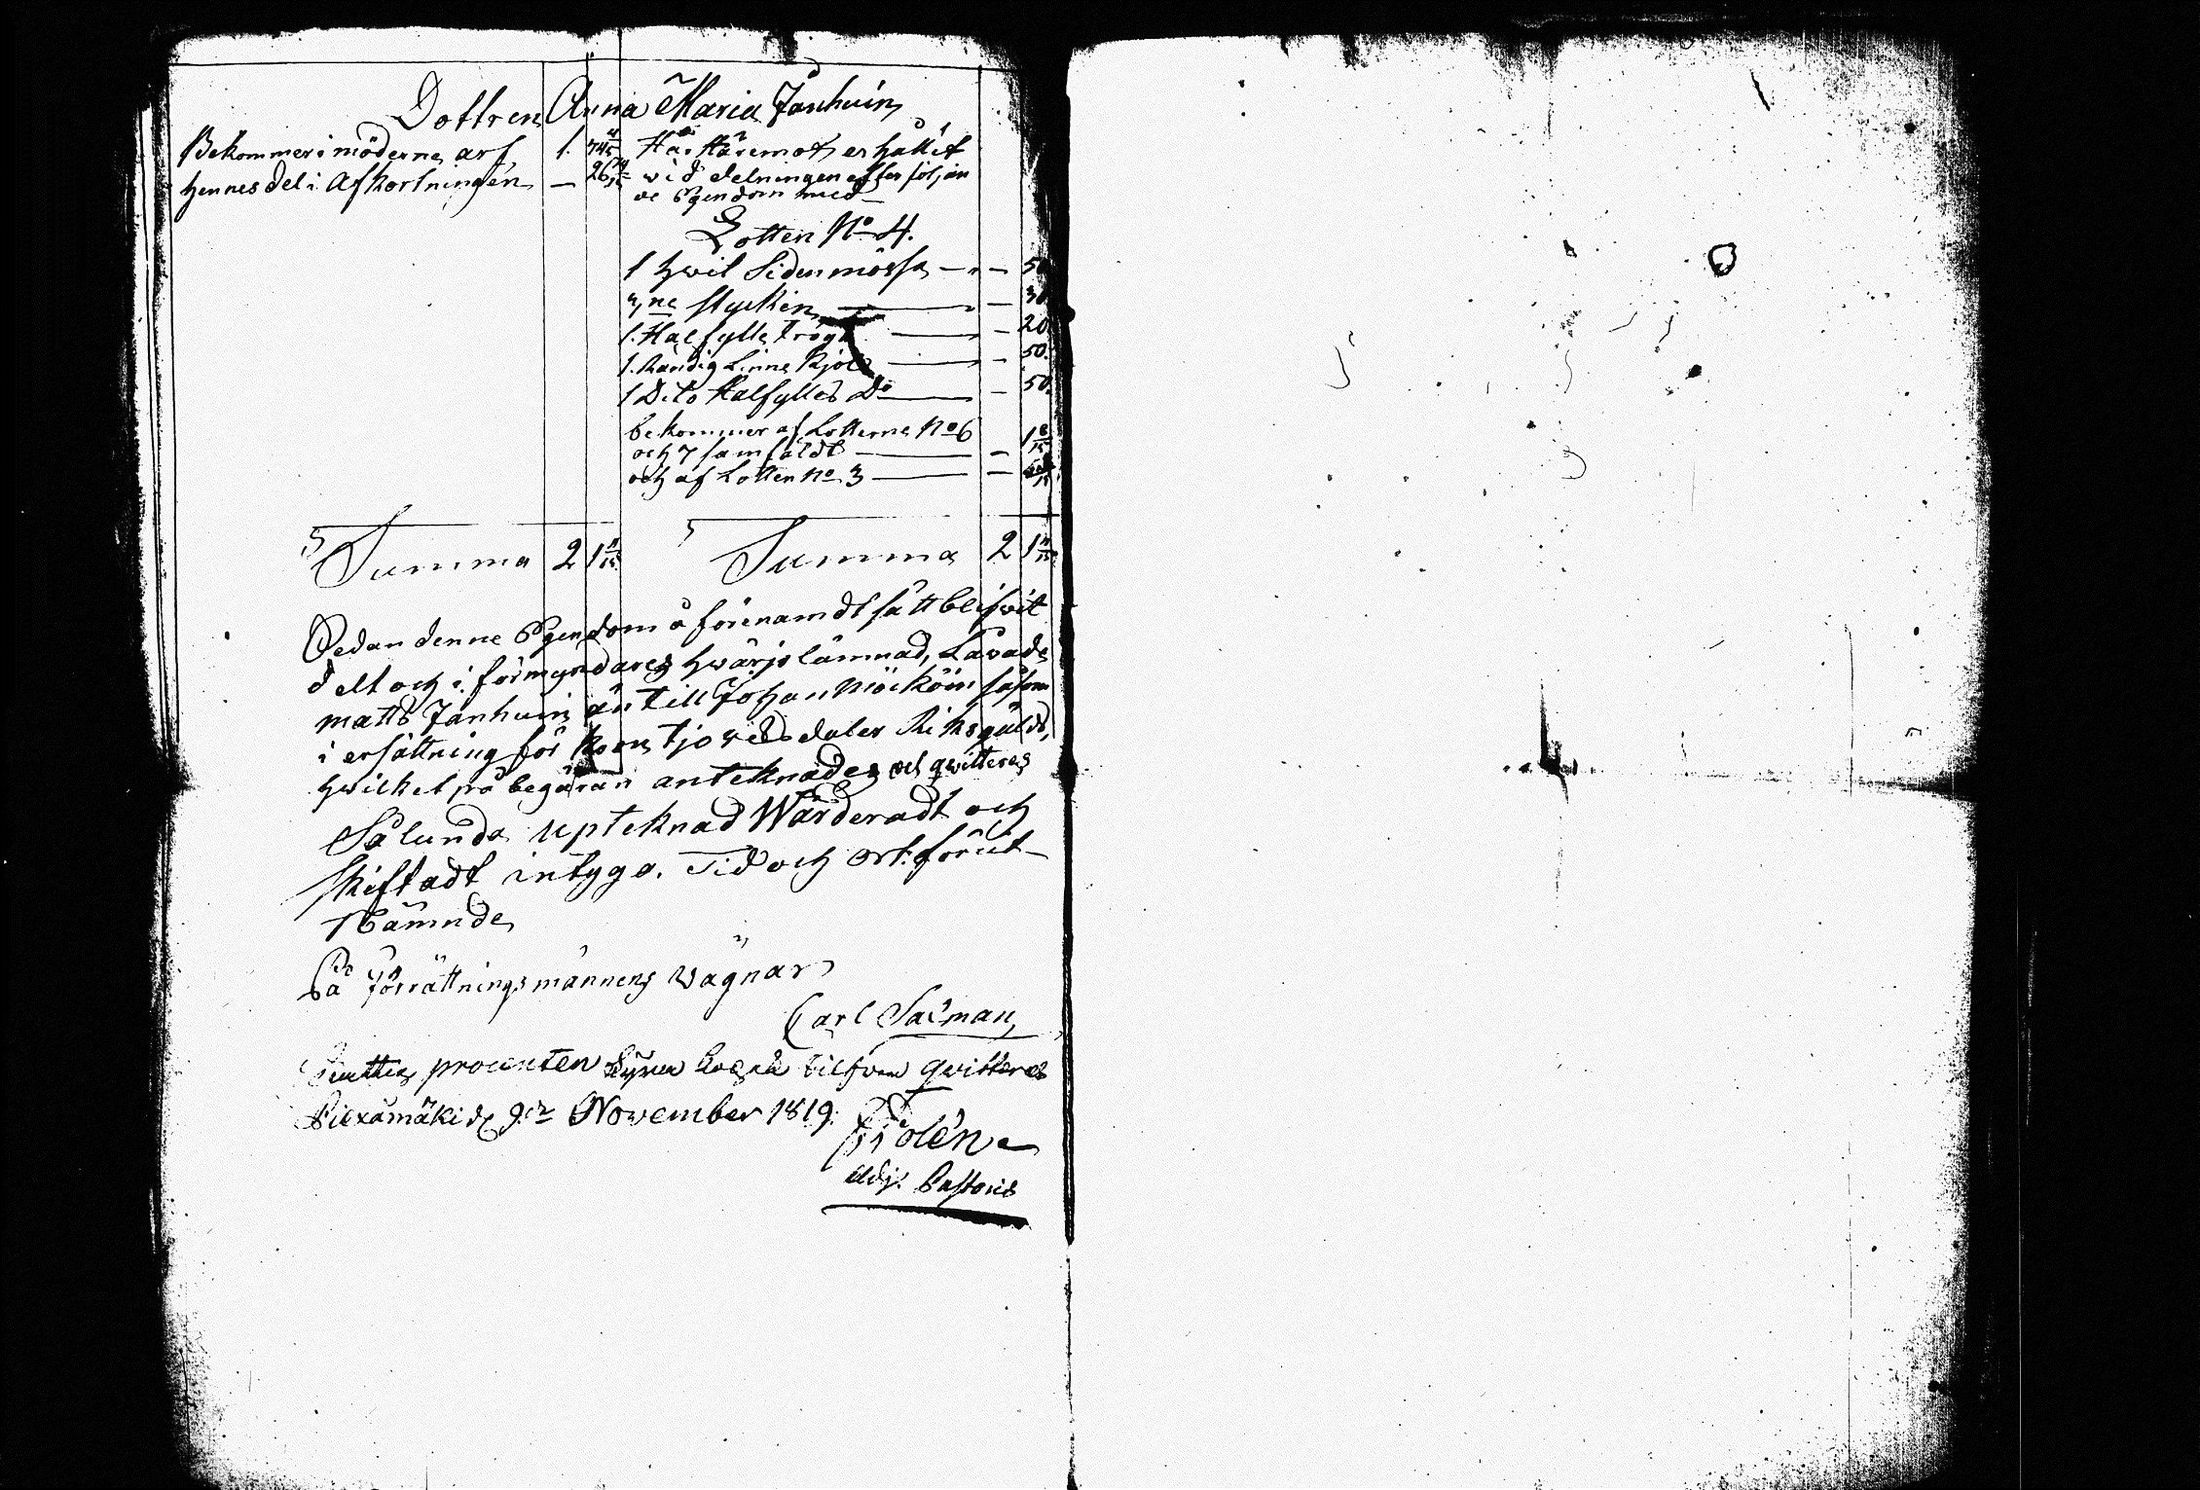 Dottren Anna Maria Janhuin
Bekommer i möderne arf 1. 74 4/15
hennes del i Afkortningen — 26
Har Häremot erhållit
wid delningen efter följan
de Egendom med
Lotten No 4.
1 hwit Siden mössa — — 50
ne stycken — — 30
1. Halfylle tröga — — 20.
1. Randig Linne Kjol — — 50.
1 Dito Halfylles Do — — 50.
bekommer af Lotterne No 6
och 7 samfäldt — — 1 8/15
och af Lotten No 3 — —
Summa 2 1 11/15
Summa 2 1 11/15
Sedan denne Egendom å förenämdt sätt blifwit
delt och i förmyndares hwärjo lämnad,
matts Janhuin än till Johan såsom
i ersättning för tjo Riksdaler Riksgälds,
hwilket på begäran anteknades och qwitteras
Sålunda upteknad Wärderadt och
skiftadt intyga. Tid och ort. förut-
Nämnde
På Förrättningsmännens wägnar
Carl Salman
procenten tilfven qvitteras
Piexämäki d. 9de November 1819.
Polén
Adj: Pastoris